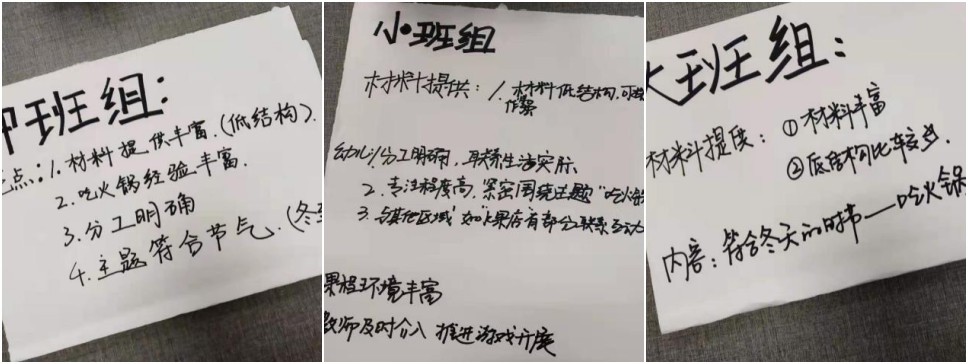 中班组:
点:1.材料提供丰富.(低结构).
2.吃火锅经验丰富.
3.分工明确
4.主题符合节气.(冬
小班组
材料提供:1.材料低结构.可
幼儿:1.分工明确,联系生活实际
2.专注程度高,紧密围绕主题"吃火锅
3.与其他区域"如"果店有部分联系互动
课程环境丰富
教师及时介入 推进游戏开展
大班组:
材料提供:①材料丰富
②低结构比较多.
内容:符合冬天的时节——吃火锅